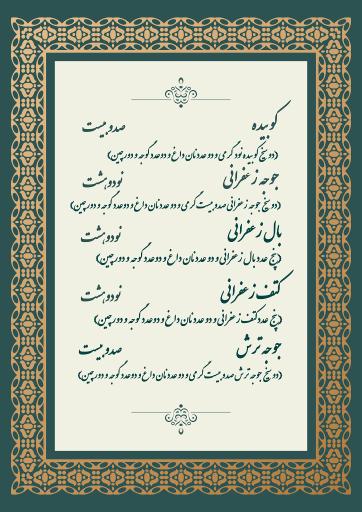 کوبیده صدوبیست
(دو سیخ کوبیده نود گرمی و دو عدد نان داغ و دو عدد گوجه و دورچین)
جوجه زعفرانی نودوهشت
(دو سیخ جوجه زعفرانی صدوبیست گرمی و دو عدد نان داغ و دو عدد گوجه و دورچین)
بال زعفرانی نودوهشت
(پنج عدد بال زعفرانی و دو عدد نان داغ و دو عدد گوجه و دورچین)
کتف زعفرانی نودوهشت
(پنج عدد کتف زعفرانی و دو عدد نان داغ و دو عدد گوجه و دورچین)
جوجه ترش صدوبیست
(دو سیخ جوجه ترش صدوبیست گرمی و دو عدد نان داغ و دو عدد گوجه و دورچین)